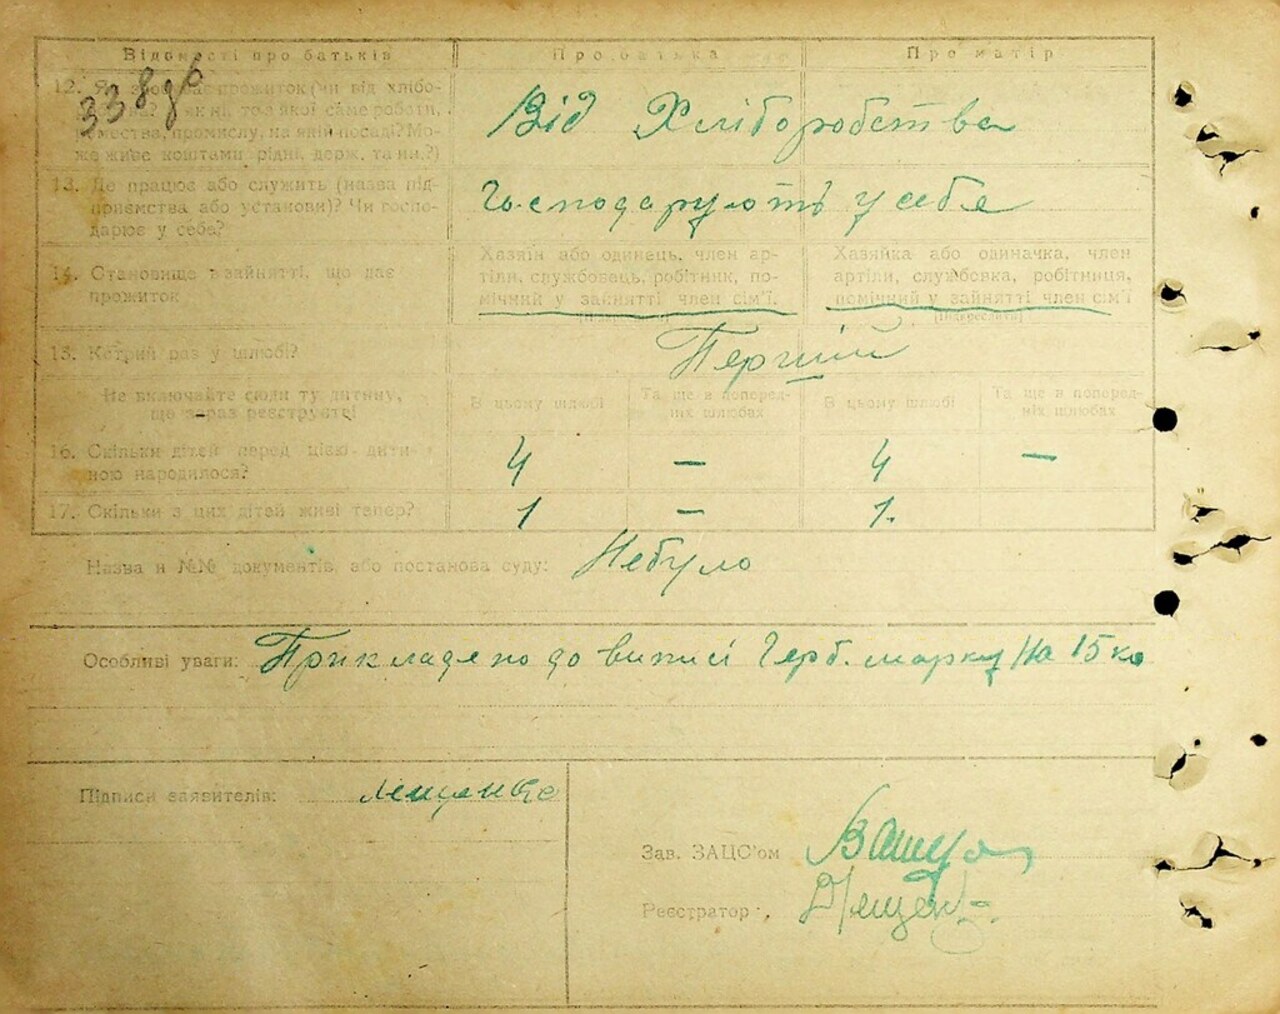 Відомості про батьків
Про батька
Про матір
338
12.
прожиток (чи від хлібо-
то з якої саме роботи,
промислу, на якій посаді? Мо-
же живе коштами рідні, держ. та ин.?)
Від Хліборобства
13. Де працює або служить (назва під-
приємства або установи)? Чи госпо-
дарює у себе?
Господарують у себе
14. Становище в зайнятті, що дає
прожиток
Хазяїн або одинець, член ар-
тілі, службовець, робітник, по-
мічний у зайнятті член сім'ї.
Хазяйка або одиначка, член
артілі, службовка, робітниця,
помічний у зайнятті член сім'ї
(підкреслити)
15. Котрий раз у шлюбі?
Перший
Не включайте сюди ту дитину,
що зараз реєструєте
В цьому шлюбі
Та ще в поперед-
ніх шлюбах
В цьому шлюбі
Та ще в поперед-
ніх шлюбах
16. Скільки дітей перед цією дити-
ною народилося?
4 — 4 —
17. Скільки з цих дітей живі тепер?
1 — 1.
Назва и №№ документів, або постанова суду: Небуло
Особливі уваги: Прикладено до виписі Герб. марку На 15 ко
Підписи заявителів: Лещенко
Зав. ЗАЦС'ом
Реєстратор